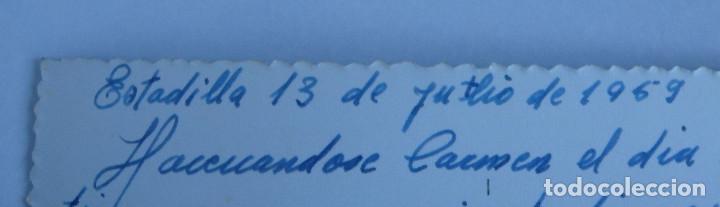 Estadilla 13 de Julio de 1959
Carmen el dia
todocoleccion.net